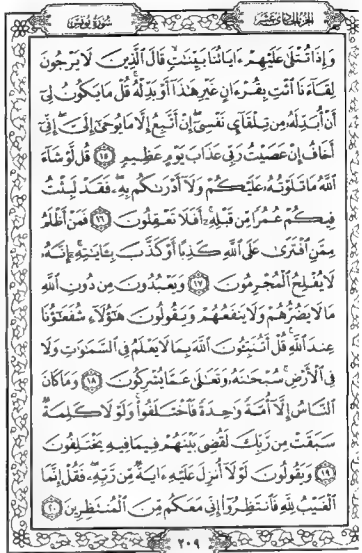 الجزء الحادي عشر
سورة يونس
وَإِذَا تُتْلَىٰ عَلَيْهِمْ ءَايَاتُنَا بَيِّنَٰتٍ قَالَ الَّذِينَ لَا يَرْجُونَ
لِقَآءَنَا ائْتِ بِقُرْءَانٍ غَيْرِ هَٰذَآ أَوْ بَدِّلْهُ ۚ قُلْ مَا يَكُونُ لِىٓ
أَنْ أُبَدِّلَهُۥ مِن تِلْقَآئِ نَفْسِىٓ ۖ إِنْ أَتَّبِعُ إِلَّا مَا يُوحَىٰٓ إِلَىَّ ۖ إِنِّىٓ
أَخَافُ إِنْ عَصَيْتُ رَبِّى عَذَابَ يَوْمٍ عَظِيمٍ ١٥ قُل لَّوْ شَآءَ
اللَّهُ مَا تَلَوْتُهُۥ عَلَيْكُمْ وَلَآ أَدْرَىٰكُم بِهِۦ ۖ فَقَدْ لَبِثْتُ
فِيكُمْ عُمُرًا مِّن قَبْلِهِۦٓ ۚ أَفَلَا تَعْقِلُونَ ١٦ فَمَنْ أَظْلَمُ
مِمَّنِ افْتَرَىٰ عَلَى اللَّهِ كَذِبًا أَوْ كَذَّبَ بِـَٔايَٰتِهِۦٓ ۚ إِنَّهُۥ
لَا يُفْلِحُ الْمُجْرِمُونَ ١٧ وَيَعْبُدُونَ مِن دُونِ اللَّهِ
مَا لَا يَضُرُّهُمْ وَلَا يَنفَعُهُمْ وَيَقُولُونَ هَٰٓؤُلَآءِ شُفَعَٰٓؤُنَا
عِندَ اللَّهِ ۚ قُلْ أَتُنَبِّـُٔونَ اللَّهَ بِمَا لَا يَعْلَمُ فِى السَّمَٰوَٰتِ وَلَا
فِى الْأَرْضِ ۚ سُبْحَٰنَهُۥ وَتَعَٰلَىٰ عَمَّا يُشْرِكُونَ ١٨ وَمَا كَانَ
النَّاسُ إِلَّآ أُمَّةً وَٰحِدَةً فَاخْتَلَفُوا۟ ۚ وَلَوْلَا كَلِمَةٌ
سَبَقَتْ مِن رَّبِّكَ لَقُضِىَ بَيْنَهُمْ فِيمَا فِيهِ يَخْتَلِفُونَ
١٩ وَيَقُولُونَ لَوْلَآ أُنزِلَ عَلَيْهِ ءَايَةٌ مِّن رَّبِّهِۦ ۖ فَقُلْ إِنَّمَا
الْغَيْبُ لِلَّهِ فَانتَظِرُوٓا۟ إِنِّى مَعَكُم مِّنَ الْمُنتَظِرِينَ ٢٠
٢٠٩